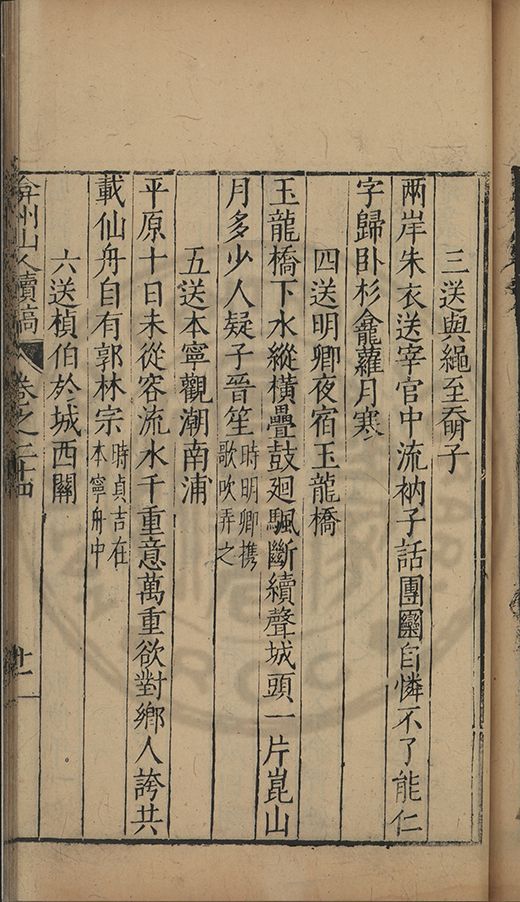 三送與繩至奣子
兩岸朱衣送宰官中流衲子話團圞自憐不了能仁
字歸臥杉龕蘿月寒
四送明卿夜宿玉龍橋
玉龍橋下水縱橫疊鼓迴颿斷續聲城頭一片崑山
月多少人疑子晉笙時明卿携歌吹弄之
五送本寧觀潮南浦
平原十日未從容流水千重意萬重欲對鄉人誇共
載仙舟自有郭林宗時貞吉在本寧舟中
六送楨伯於城西關
弇州山人續稿 卷之二十四 十一